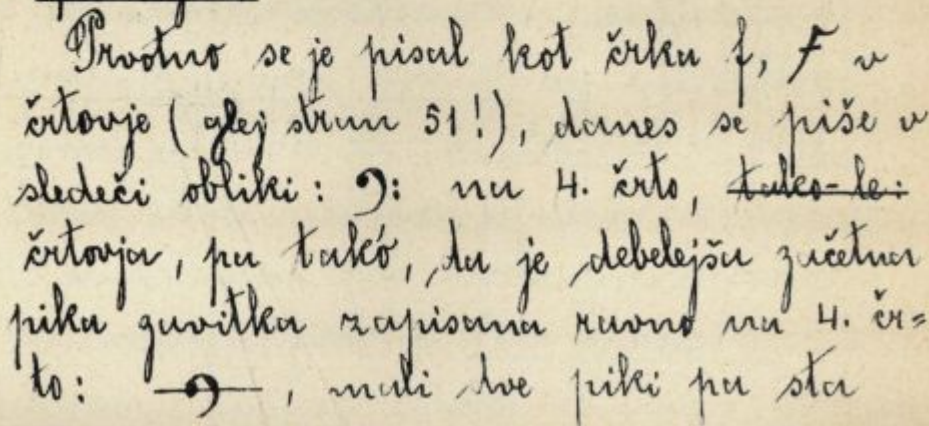 Prvotno se je pisal kot črka f, F v
črtovje (glej stran 51!), danes se piše v
sledeči obliki: 𝄢 na 4. črto, ~~tako-le:~~
črtovja, pa takó, da je debelejša začetna
pika zavitka zapisana ravno na 4. čr=
to: , mali dve piki pa sta